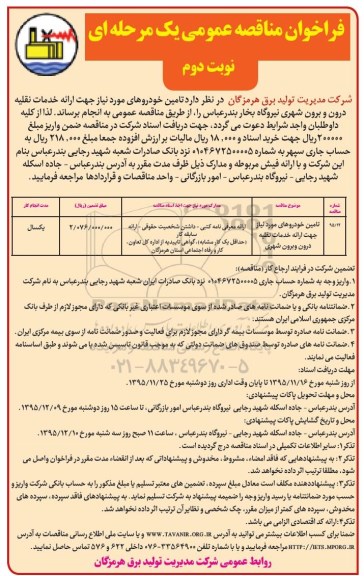 فراخوان مناقصه عمومی یک مرحله ای
نوبت دوم
شرکت مدیریت تولید برق هرمزگان در نظر دارد تامین خودروهای مورد نیاز جهت ارائه خدمات نقلیه
درون و برون شهری نیروگاه بخار بندرعباس را، از طریق مناقصه عمومی به انجام برساند. لذا از کلیه
داوطلبان واجد شرایط دعوت می گردد، جهت دریافت اسناد شرکت در مناقصه ضمن واریز مبلغ
۲۰۰۰۰۰ ریال جهت خرید اسناد و ۱۸,۰۰۰ ریال مالیات بر ارزش افزوده جمعا مبلغ ۲۱۸,۰۰۰ ریال به
حساب جاری سپهر به شماره ۰۱۰۴۶۷۲۵۰۰۰۰۵ نزد بانک صادرات شعبه شهید رجایی بندرعباس بنام
این شرکت و با ارائه فیش مربوطه و مدارک ذیل ظرف مدت مقرر به آدرس بندرعباس - جاده اسکله
شهید رجایی - نیروگاه بندرعباس - امور بازرگانی - واحد مناقصات و قراردادها مراجعه فرمایید.
شماره مناقصه
موضوع مناقصه
مبلغ تضمین (ریال)
مدت انجام کار
تامین خودروهای مورد نیاز
جهت ارائه خدمات نقلیه
درون و برون شهری
ارائه معرفی نامه کتبی - داشتن شخصیت حقوقی - ارائه
سابقه کار
(حداقل یک کار مشابه)، گواهی تاییدیه از اداره کل تعاون،
کار و رفاه اجتماعی استان هرمزگان
۲/۰۷۶/۰۰۰/۰۰۰
یکسال
تضمین شرکت در فرایند ارجاع کار (مناقصه):
۱. واریز وجه به شماره حساب جاری ۰۱۰۴۶۷۲۵۰۰۰۰۵ نزد بانک صادرات ایران شعبه شهید رجایی بندرعباس به نام شرکت
مدیریت تولید برق هرمزگان.
۲. ضمانتنامه بانکی و یا ضمانت نامه های صادر شده از سوی موسسات اعتباری غیر بانکی که دارای مجوز لازم از طرف بانک
مرکزی جمهوری اسلامی ایران هستند.
۳. ضمانت نامه صادره توسط موسسات بیمه گر دارای مجوز لازم برای فعالیت و صدور ضمانت نامه از سوی بیمه مرکزی ایران.
۴. ضمانت نامه های صادره توسط صندوق های ضمانت دولتی که به موجب قانون تاسیس شده یا می شوند و طبق اساسنامه
فعالیت می نمایند.
۰۲۱-۸۸۳۴۹۶۷۰-۵
مهلت دریافت اسناد:
از روز شنبه مورخ ۱۳۹۵/۱۱/۱۶ تا پایان وقت اداری روز دوشنبه مورخ ۱۳۹۵/۱۱/۲۵
محل و مهلت تحویل پاکات پیشنهادی:
آدرس بندرعباس - جاده اسکله شهید رجایی نیروگاه بندرعباس امور بازرگانی، تا ساعت ۱۵ روز دوشنبه مورخ ۱۳۹۵/۱۲/۰۹
محل و تاریخ گشایش پاکات پیشنهادی:
آدرس بندرعباس - جاده اسکله شهید رجایی - نیروگاه بندرعباس، ساعت ۱۱ صبح روز سه شنبه مورخ ۱۳۹۵/۱۲/۱۰
تذکر۱: سایر اطلاعات تکمیلی در اسناد مناقصه درج گردیده است.
تذکر۲: به پیشنهادهایی که فاقد امضاء، مشروط، مخدوش و پیشنهاداتی که بعد از انقضاء مدت مقرر در فراخوان واصل می
شود، مطلقا ترتیب اثر داده نخواهد شد.
تذکر۳: پیشنهاددهنده مکلف است معادل مبلغ سپرده، تضمین های معتبر تسلیم یا مبلغ مذکور را به حساب بانکی شرکت واریز و
حسب مورد ضمانتنامه یا رسید واریز وجه را ضمیمه پیشنهاد به شرکت تسلیم نماید. به پیشنهادهای فاقد سپرده، سپرده های
مخدوش، سپرده های کمتر از میزان مقرر، چک شخصی و نظایر آن ترتیب اثر داده نخواهد شد.
تذکر۴: ارائه کد اقتصادی الزامی می باشد.
ضمنا برای کسب اطلاعات بیشتر می توانید به آدرس WWW.TAVANIR.ORG.IR و یا سایت ملی اطلاع رسانی مناقصات به آدرس
HTTP://IETS.MPORG.IR مراجعه فرمایید و یا با شماره تلفن ۳۳۵۶۴۹۰۰-۰۷۶ داخلی ۶۲۲ و ۵۷۶ تماس حاصل نمایید.
روابط عمومی شرکت مدیریت تولید برق هرمزگان